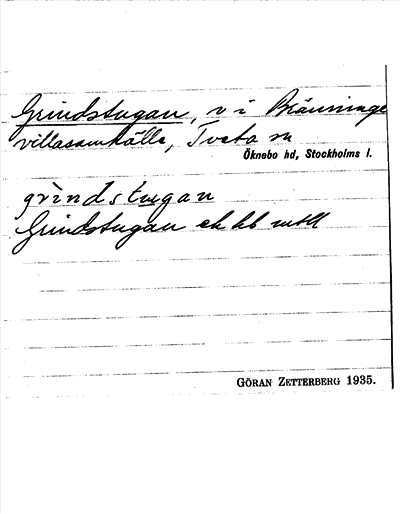 Grindstugan, v i Bränninge
villasamhälle, Tveta sn
Öknebo hd, Stockholms l.
grìndstugan
Grindstugan ek kb mtll
GÖRAN ZETTERBERG 1935.